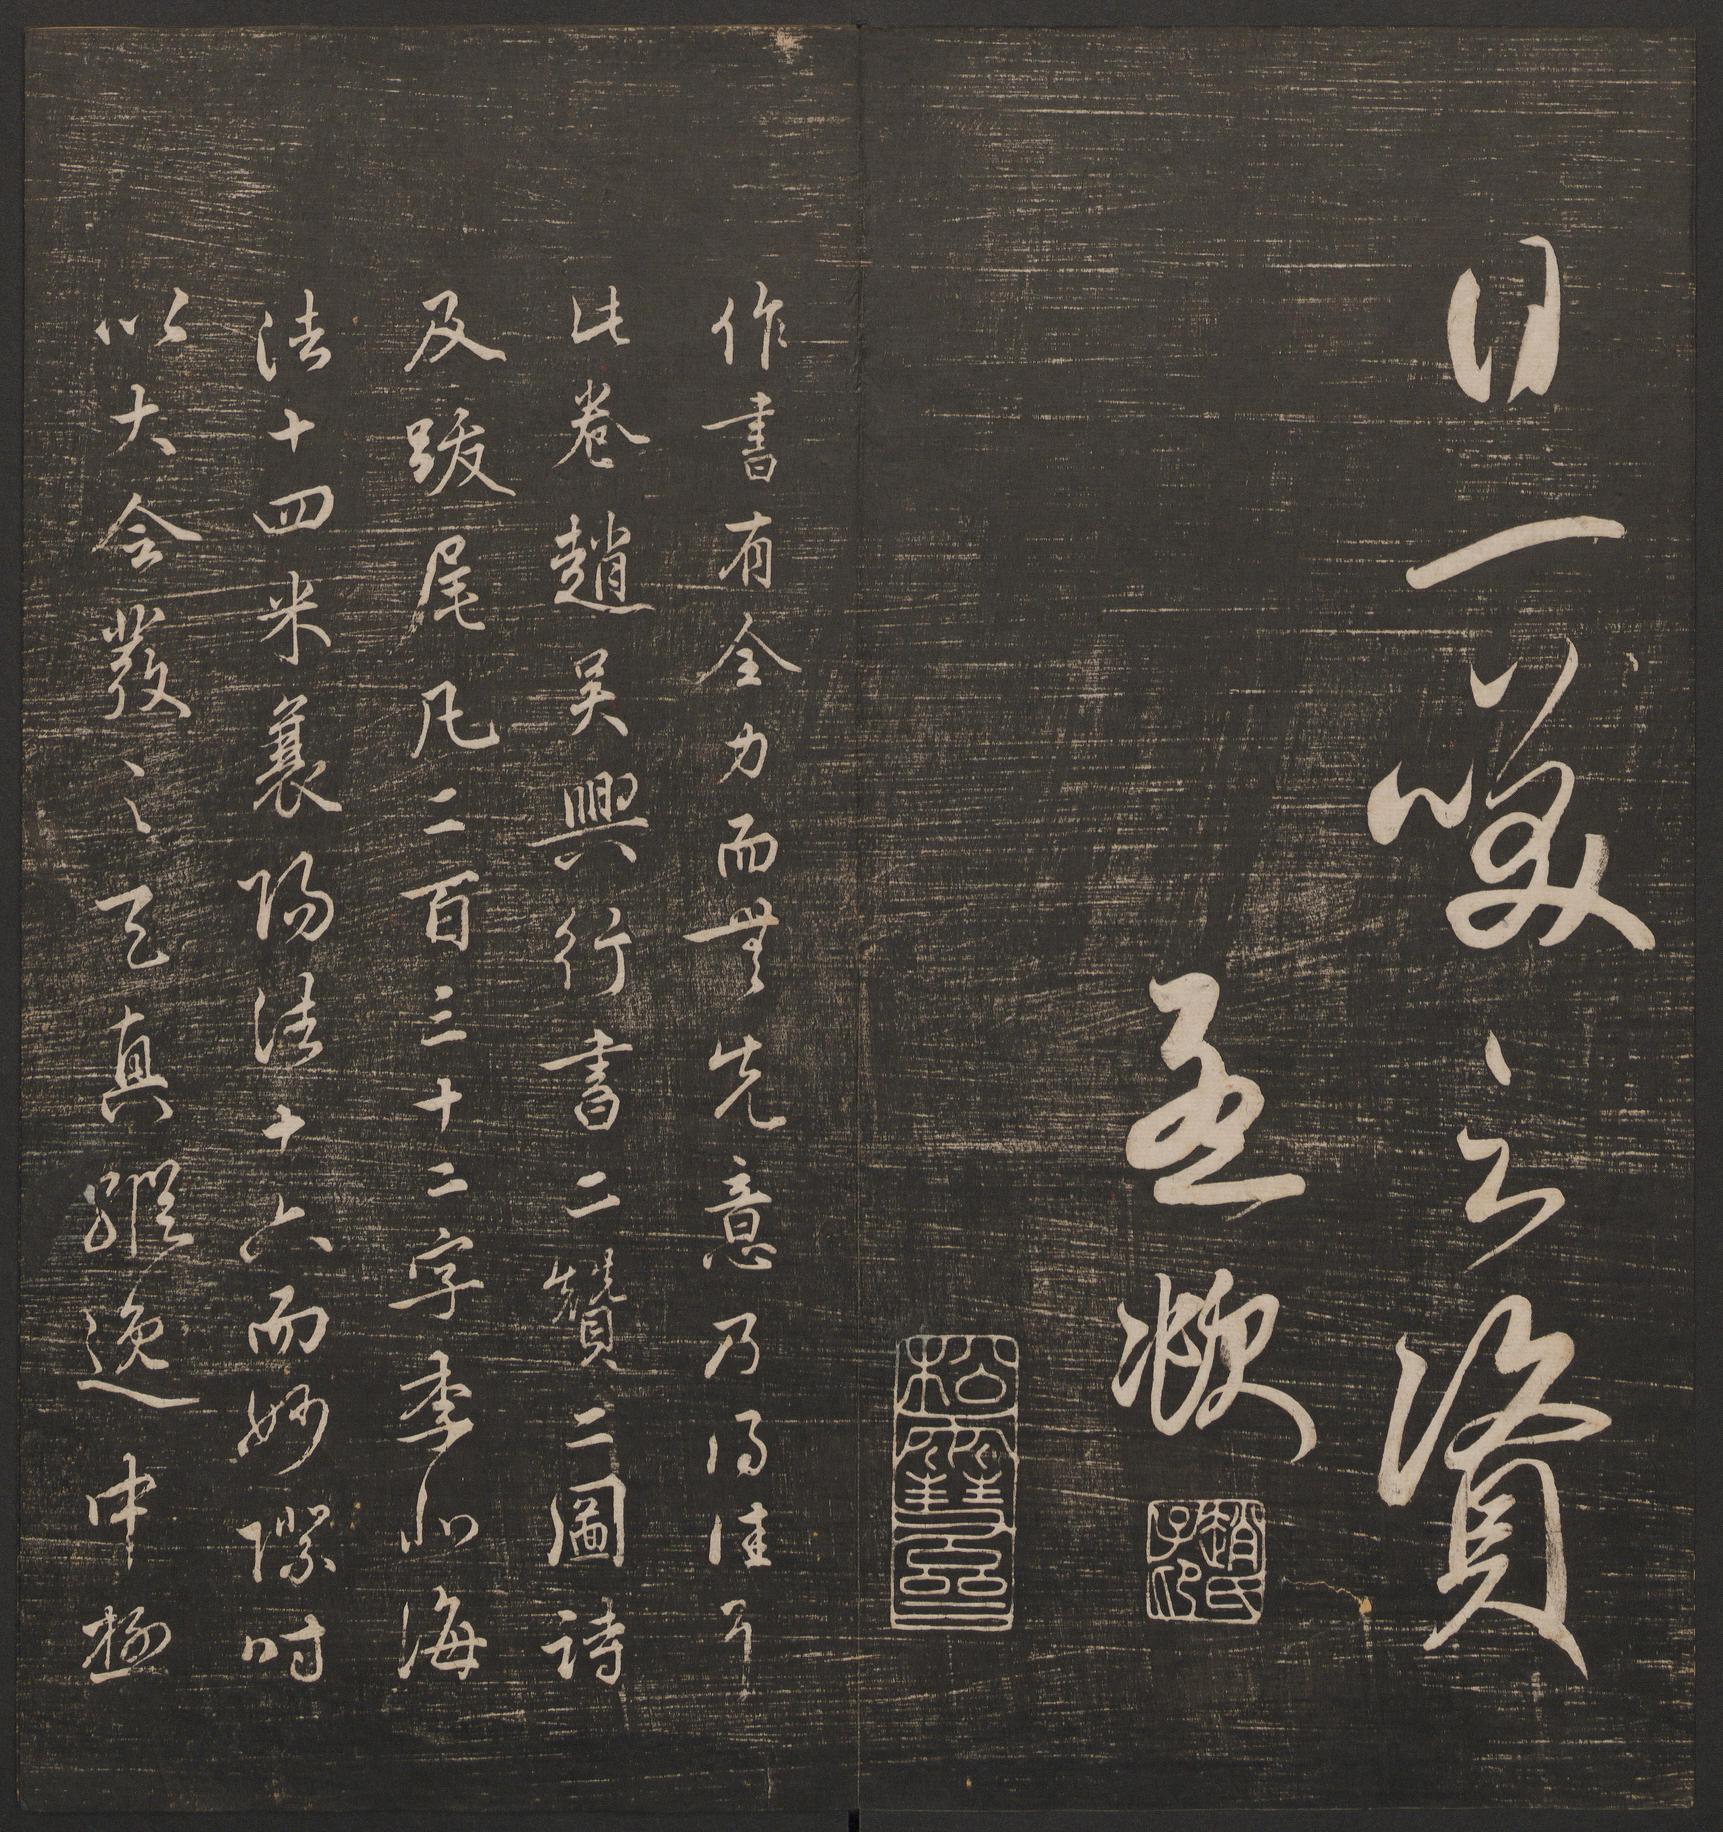 日一笑之資
孟頫
趙氏子印
松雪齋
作書有全力而無先意乃得佳耳
此卷趙吳興行書二贊二圖詩
及跋尾凡二百三十二字李北海
法十四米襄陽法十六而妙際時
以大令發之天真縱逸中極